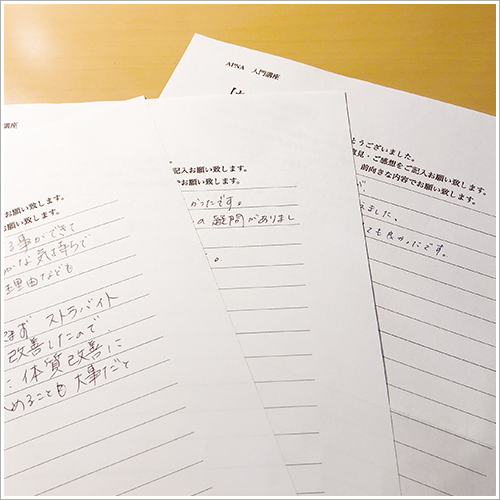 講座
お願い致します。
お願い致します。
る事ができて
な気持ちで
理由なども
まず ストラバイト
改善したので
体質改善に
めることも大事だと
記入お願い致します。
お願い致します。
かったです。
の疑問がありまし
。
APNA 入門講座
とうございました。
意見・ご感想をご記入お願い致します。
前向きな内容でお願い致します。
が、
えました、
ても良かったです。